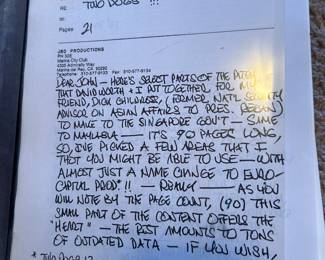 RE: TWO DOGS !!!
TO:
Pages 21
JBO PRODUCTIONS
PH 305
Marina City Club
4333 Admiralty Way
Marina del Rey, CA. 90292
Telephone: 310-577-9133 Fax: 310-577-9134
DEAR JOHN — HERE'S SELECT PARTS OF THE PITCH
THAT DAVID WORTH & I PUT TOGETHER FOR MY
FRIEND, DICK CHILDRESS, (FORMER NAT'L SECURITY
ADVISOR ON ASIAN AFFAIRS TO PRES. REAGAN)
TO MAKE TO THE SINGAPORE GOV'T — SAME
TO MALAYSIA — IT'S 90 PAGES LONG,
SO, I'VE PICKED A FEW AREAS THAT I
THOT YOU MIGHT BE ABLE TO USE — WITH
ALMOST JUST A NAME CHANGE TO EURO-
CAPITAL PROD.!! — REALLY — AS YOU
WILL NOTE BY THE PAGE COUNT, (90) THIS
SMALL PART OF THE CONTENT OFFERS THE
"HEART" — THE REST AMOUNTS TO TONS
OF OUTDATED DATA — IF YOU WISH,